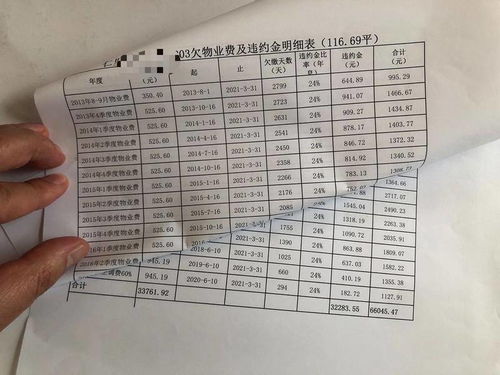 603欠物业费及违约金明细表（116.69平）
年度 (元) 起 止 欠缴天数（天） 违约金比率（年息） 违约金（元） 合计（元）
2013年8-9月物业费 350.40 2013-8-1 2021-3-31 2799 24% 644.89 995.29
2013年4季度物业费 525.60 2013-10-16 2021-3-31 2723 24% 941.07 1466.67
2014年1季度物业费 525.60 2014-1-16 2021-3-31 2631 24% 909.27 1434.87
2014年2季度物业费 525.60 2014-4-16 2021-3-31 2541 24% 878.17 1403.77
2014年3季度物业费 525.60 2014-7-16 2021-3-31 2450 24% 846.72 1372.32
2014年4季度物业费 525.60 2014-10-16 2021-3-31 2358 24% 814.92 1340.52
2015年1季度物业费 525.60 2015-1-16 2021-3-31 2266 24% 783.13
2015年2季度物业费 525.60 2015-4-16 2021-3-31 2176 24% 1364.66
2015年3季度物业费 525.60 2015-7-16 2021-3-31 2085 2717.07
2015年4季度物业费 525.60 2015-10-16 2021-3-31 1755 24% 1545.04 2490.23
2016年1季度物业费 525.60 1390 24% 1318.19 2263.38
2016年2季度物业费 945.19 2018-6-10 2021-3-31 1025 24% 1090.72 2035.91
调费60% 945.19 2019-6-10 2021-3-31 660 24% 863.88 1809.07
33761.92 2020-6-10 2021-3-31 294 24% 637.03 1582.22
410.19 1355.38
182.72 1127.91
32283.55 66045.47